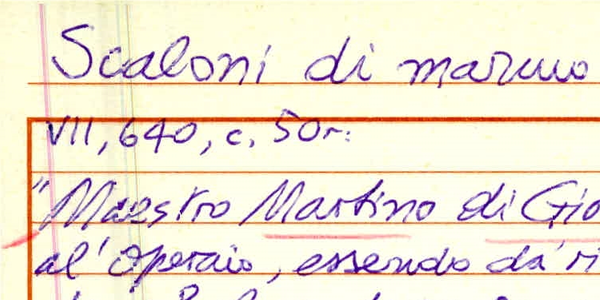 Scaloni di marmo
VII, 640, c. 50r:
"Maestro Martino di Gio
al' Operaio, essendo da ri